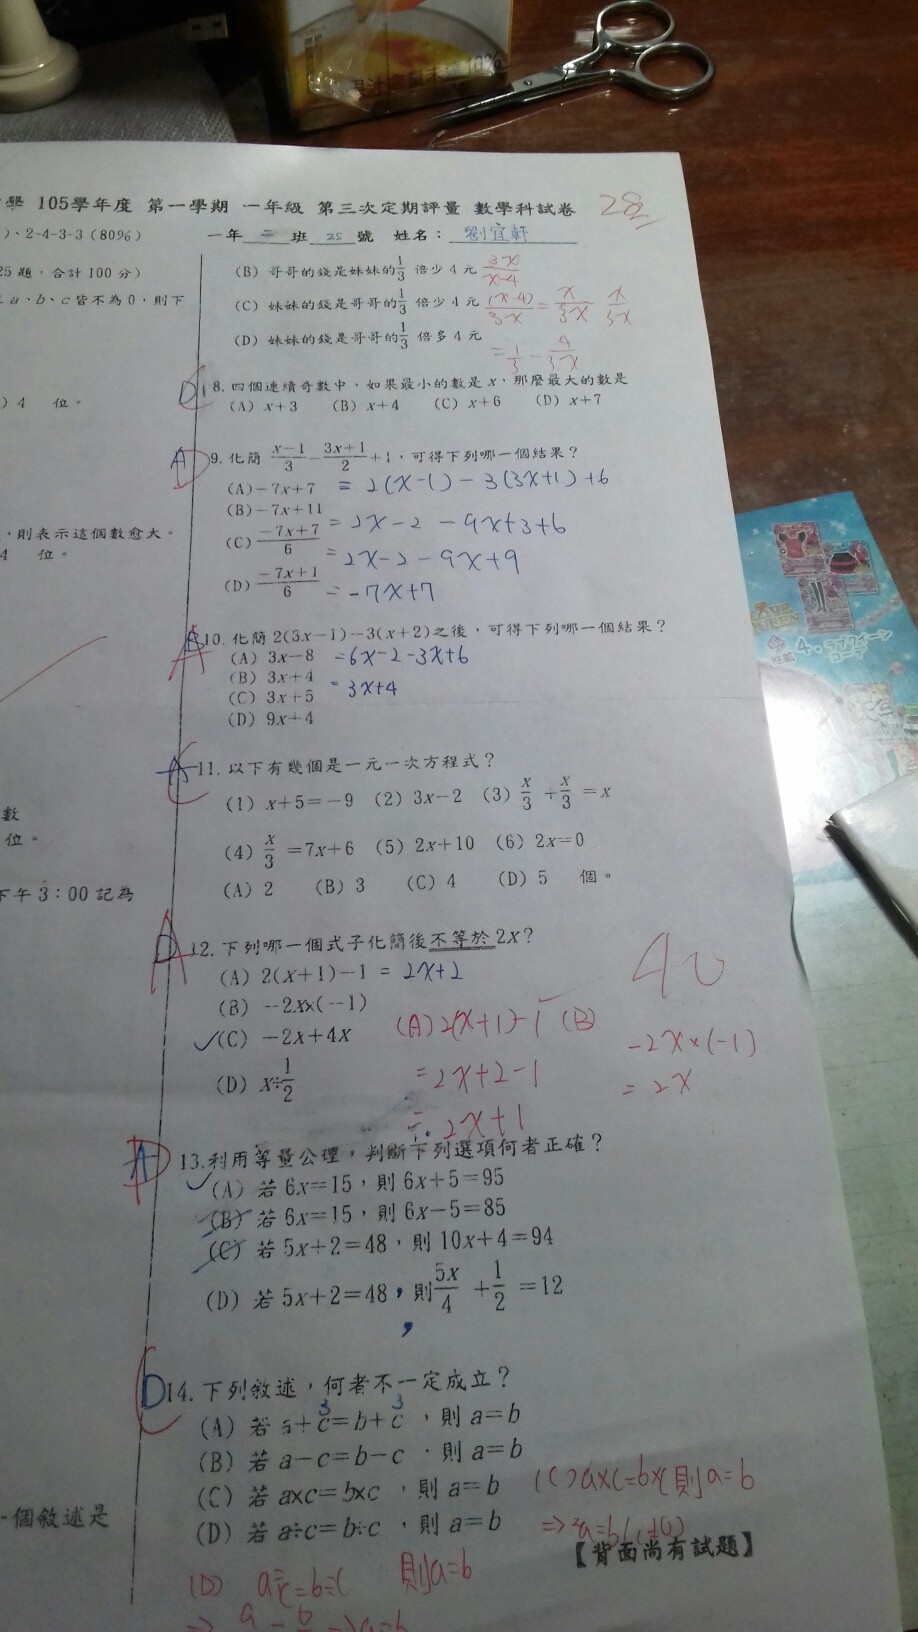 105學年度 第一學期 一年級 第三次定期評量 數學科試卷 28
)、2-4-3-3(80%)
一年 二 班 25 號 姓名： 劉宜軒
25題，合計100分)
a、b、c皆不為0，則下
) 4 位。
，則表示這個數愈大。
4 位。
數
位。
下午3：00記為
一個敘述是
(B) 哥哥的錢是妹妹的1/3倍少4元 3-x/x-4
(C) 妹妹的錢是哥哥的1/3倍少4元 (x-4)/3-x = x/3x x/3x
(D) 妹妹的錢是哥哥的1/3倍多4元
= 1/3 - 4/3x
8. 四個連續奇數中，如果最小的數是x，那麼最大的數是
(A) x+3 (B) x+4 (C) x+6 (D) x+7
A D 9. 化簡 x-1/3 - 3x+1/2 +1，可得下列哪一個結果？
(A) -7x+7 = 2(x-1) - 3(3x+1) +6
(B) -7x+11 = 2x-2 - 9x+3+6
(C) -7x+7/6 = 2x-2-9x+9
(D) -7x+1/6 = -7x+7
B A 10. 化簡 2(3x-1)-3(x+2)之後，可得下列哪一個結果？
(A) 3x-8 =6x-2-3x+6
(B) 3x+4 = 3x+4
(C) 3x+5
(D) 9x+4
A C 11. 以下有幾個是一元一次方程式？
(1) x+5=-9 (2) 3x-2 (3) x/3 + x/3 = x
(4) x/3 =7x+6 (5) 2x+10 (6) 2x=0
(A) 2 (B) 3 (C) 4 (D) 5 個。
D A 12. 下列哪一個式子化簡後不等於2x？
(A) 2(x+1)-1 = 2x+2
(B) -2x×(-1)
(C) -2x+4x
(D) x÷1/2
(A) 2(x+1)-1 (B)
= 2x+2-1
= 2x+1
-2x×(-1)
= 2x
A D 13. 利用等量公理，判斷下列選項何者正確？
(A) 若 6x=15，則 6x+5=95
(B) 若 6x=15，則 6x-5=85
(C) 若 5x+2=48，則 10x+4=94
(D) 若 5x+2=48，則 5x/4 + 1/2 =12
D C 14. 下列敘述，何者不一定成立？
3 3
(A) 若 a+c=b+c ，則 a=b
(B) 若 a-c=b-c ，則 a=b
(C) 若 a×c=b×c ，則 a=b
(D) 若 a÷c=b÷c ，則 a=b
(C) a×c=b×c 則 a=b
【背面尚有試題】
(D) a÷c=b÷c 則a=b